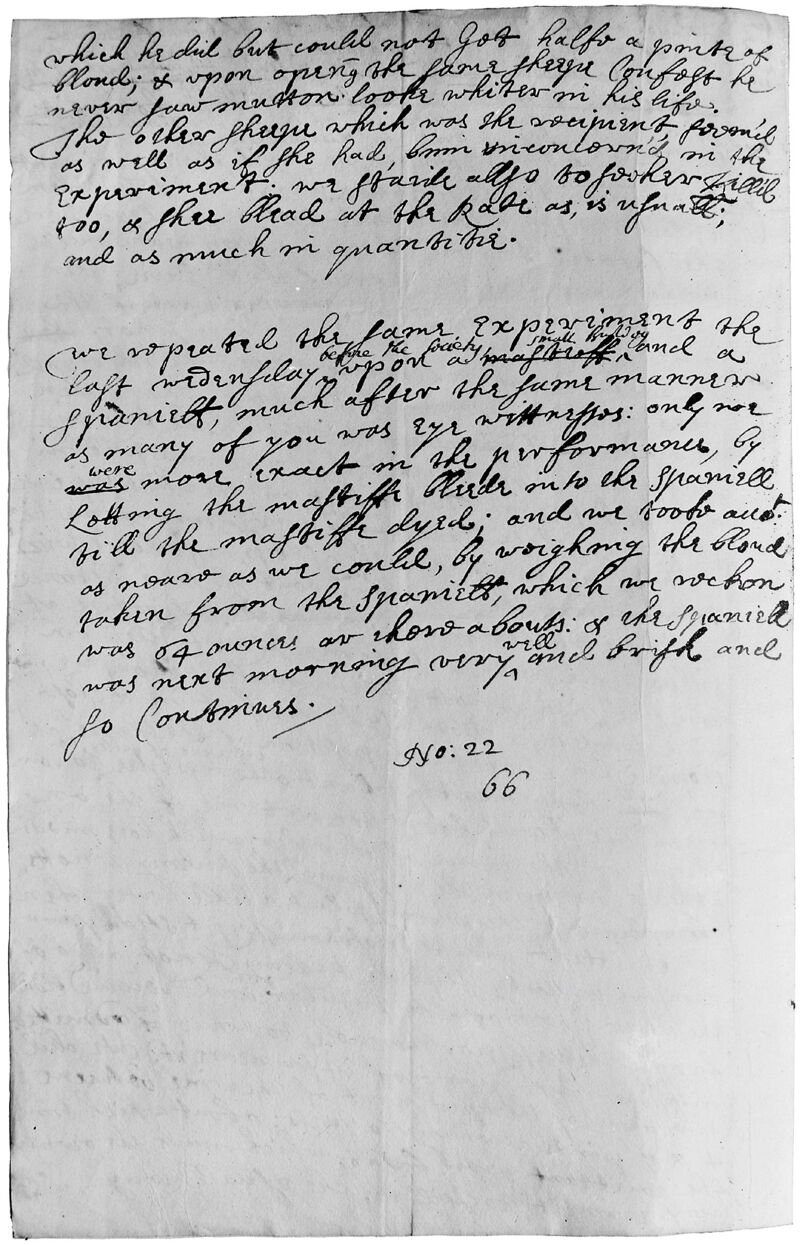 which he did but could not Get halfe a pinte of
bloud; & upon opening the same sheepe Confest he
never saw mutton looke whiter in his life.
The other sheepe which was the recipient seem'd
as well as if she had binn unconcern'd in the
Experiment. we staide allso to see her killd
too, & shee blead at the Rate as, is usuall;
and as much in quantitie.
we repeated the same Experiment the
last wedensday before the society, upon a mastieff small and a
spaniell, much after the same manner
as many of you was eye wittnesses: only we
was were more exact in the performance, by
Letting the mastiffe bleede into the spaniell
till the mastiffe dyed; and we tooke
as neare as we could, by weighing the bloud
taken from the spaniell, which we reckon
was 64 ounces or there abouts: & the spaniell
was next morning very well and brisk and
so Continues.
No: 22
66